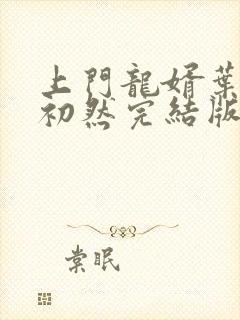 上門龍婿葉
初然完結版
棠眠